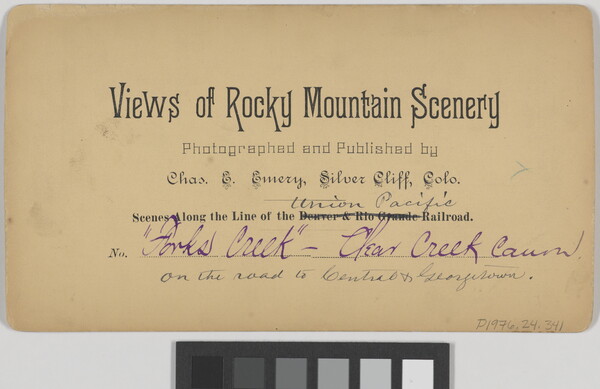 Views of Rocky Mountain Scenery
Photographed and Published by
Chas. E. Emery, Silver Cliff, Colo.
Union Pacific
Scenes Along the Line of the Denver & Rio Grande Railroad.
No. "Forks Creek" - Clear Creek Canon.
on the road to Central & Georgetown.
P1976.24.341